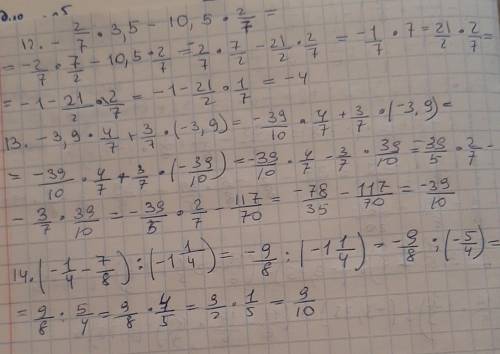 12. - 2/7 · 3,5 - 10,5 · 2/7 =
= -2/7 · 7/2 - 10,5 · 2/7 = 2/7 · 7/2 - 21/2 · 2/7 = -1/7 · 7 = 21/2 · 2/7 =
= -1 - 21/2 · 2/7 = -1 - 21/2 · 1/7 = -4
13. -3,9 · 4/7 + 3/7 · (-3,9) = -39/10 · 4/7 + 3/7 · (-3,9) =
= -39/10 · 4/7 + 3/7 · (-39/10) = -39/10 · 4/7 - 3/7 · 39/10 = -39/5 · 2/7 -
- 3/7 · 39/10 = -39/5 · 2/7 - 117/70 = -78/35 - 117/70 = -39/10
14. (-1/4 - 7/8) : (-1 1/4) = -9/8 : (-1 1/4) = -9/8 : (-5/4) =
= 9/8 : 5/4 = 9/8 · 4/5 = 9/2 · 1/5 = 9/10